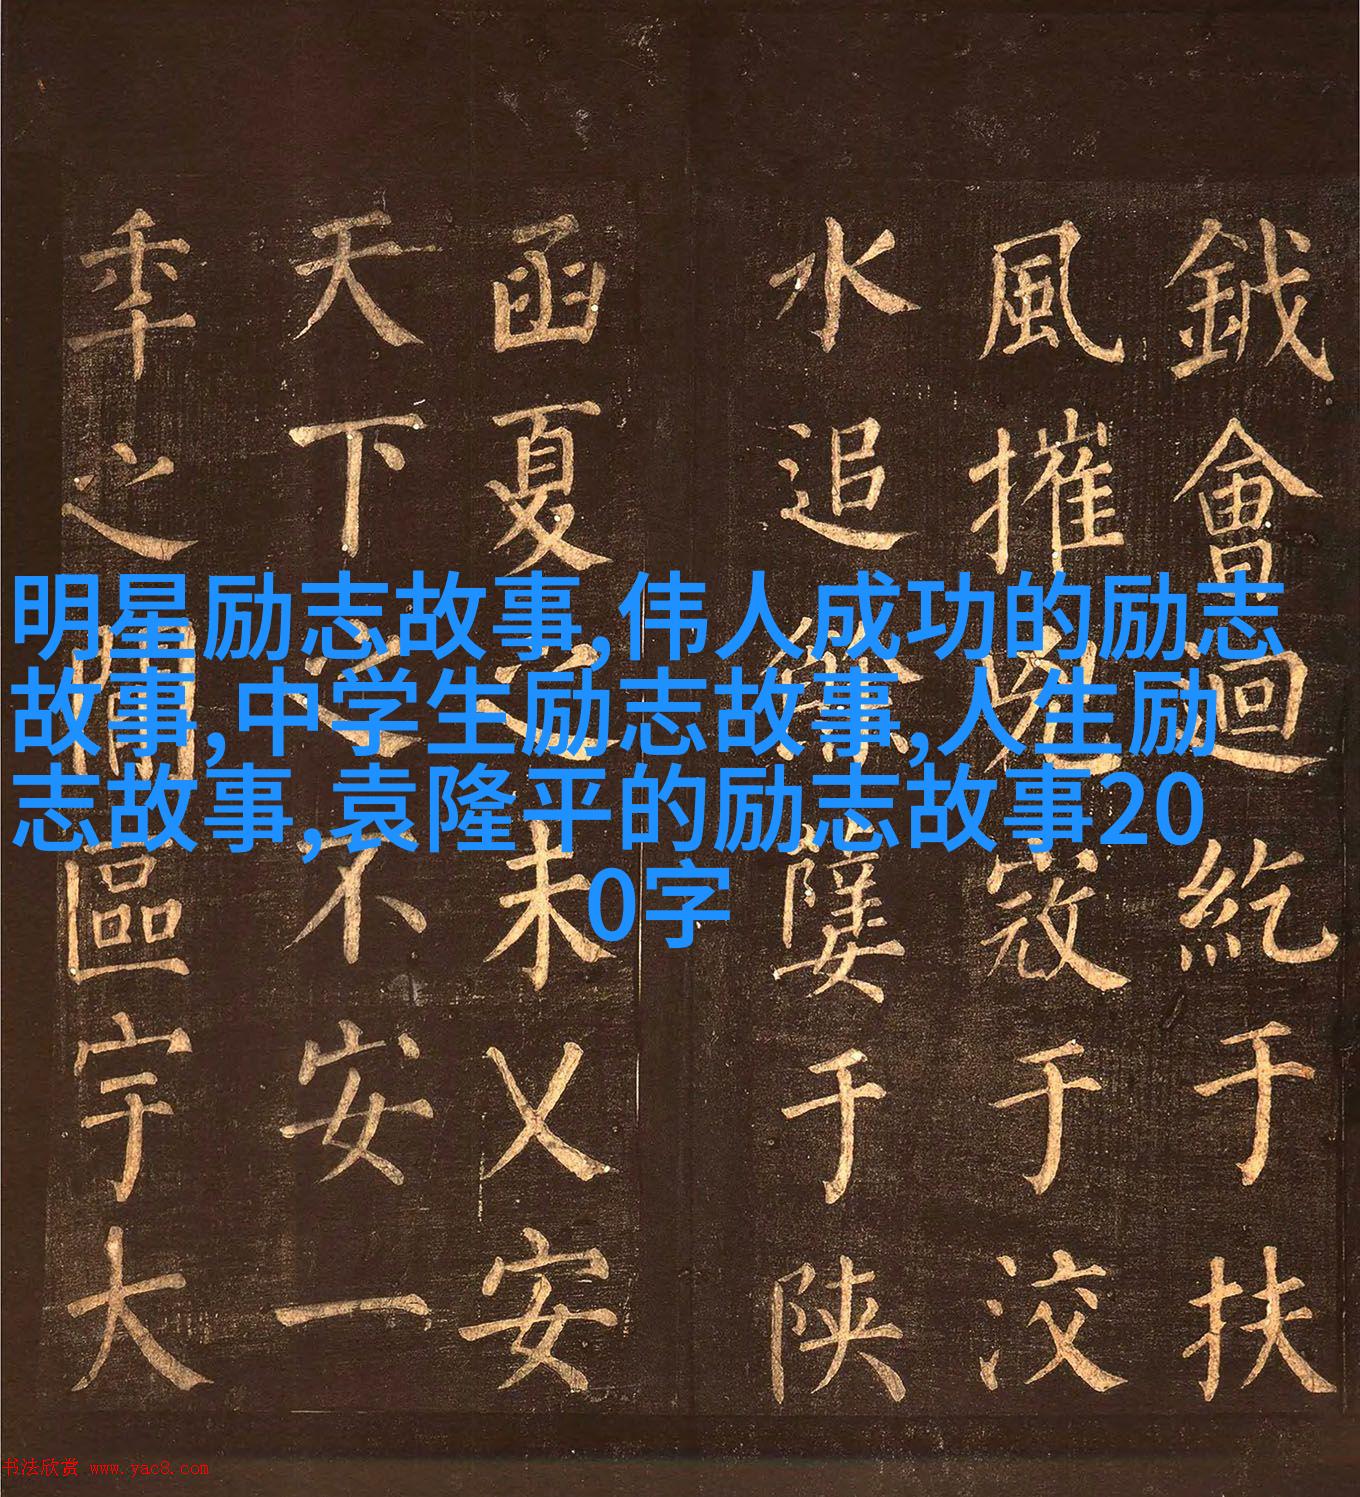 明星励志故事,伟人成功的励志
故事,中学生励志故事,人生励
志故事,袁隆平的励志故事20
0字
鉞會迴紇于扶
風摧寇于洨
水追于陝
函夏之未乂安
天下之不安一
秊之間區宇大
书法欣赏 www.yac8.com